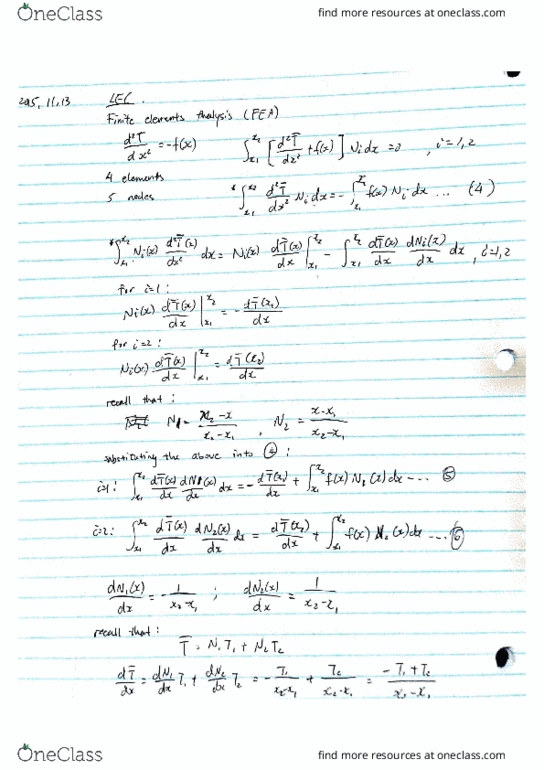 OneClass
find more resources at oneclass.com
2015, 11, 13 LEC.
Finite elements Analysis (FEA)
d²T̄/dx² = -f(x) ∫_{x₁}^{x₂} [d²T̄/dx² + f(x)] Nᵢ dx = 0 , i=1,2
4 elements
5 nodes ∫_{x₁}^{x₂} d²T̄/dx² Nᵢ dx = -∫_{x₁}^{x₂} f(x) Nᵢ dx ... (4)
∫_{x₁}^{x₂} Nᵢ(x) d²T̄(x)/dx² dx = Nᵢ(x) dT̄(x)/dx |_{x₁}^{x₂} - ∫_{x₁}^{x₂} dT̄(x)/dx dNᵢ(x)/dx dx , i=1,2
for i=1:
Nᵢ(x) dT̄(x)/dx |_{x₁}^{x₂} = - dT̄(x₁)/dx
for i=2:
Nᵢ(x) dT̄(x)/dx |_{x₁}^{x₂} = dT̄(x₂)/dx
recall that:
N₁ = (x₂-x)/(x₂-x₁) , N₂ = (x-x₁)/(x₂-x₁)
substituting the above into ④:
i=1: ∫_{x₁}^{x₂} dT̄(x)/dx dN₁(x)/dx dx = - dT̄(x₁)/dx + ∫_{x₁}^{x₂} f(x) N₁(x) dx ... ⑤
i=2: ∫_{x₁}^{x₂} dT̄(x)/dx dN₂(x)/dx dx = dT̄(x₂)/dx + ∫_{x₁}^{x₂} f(x) N₂(x) dx ... ⑥
dN₁(x)/dx = - 1/(x₂-x₁) ; dN₂(x)/dx = 1/(x₂-x₁)
recall that:
T̄ = N₁T₁ + N₂T₂
dT̄/dx = dN₁/dx T₁ + dN₂/dx T₂ = - T₁/(x₂-x₁) + T₂/(x₂-x₁) = (-T₁+T₂)/(x₂-x₁)
OneClass
find more resources at oneclass.com